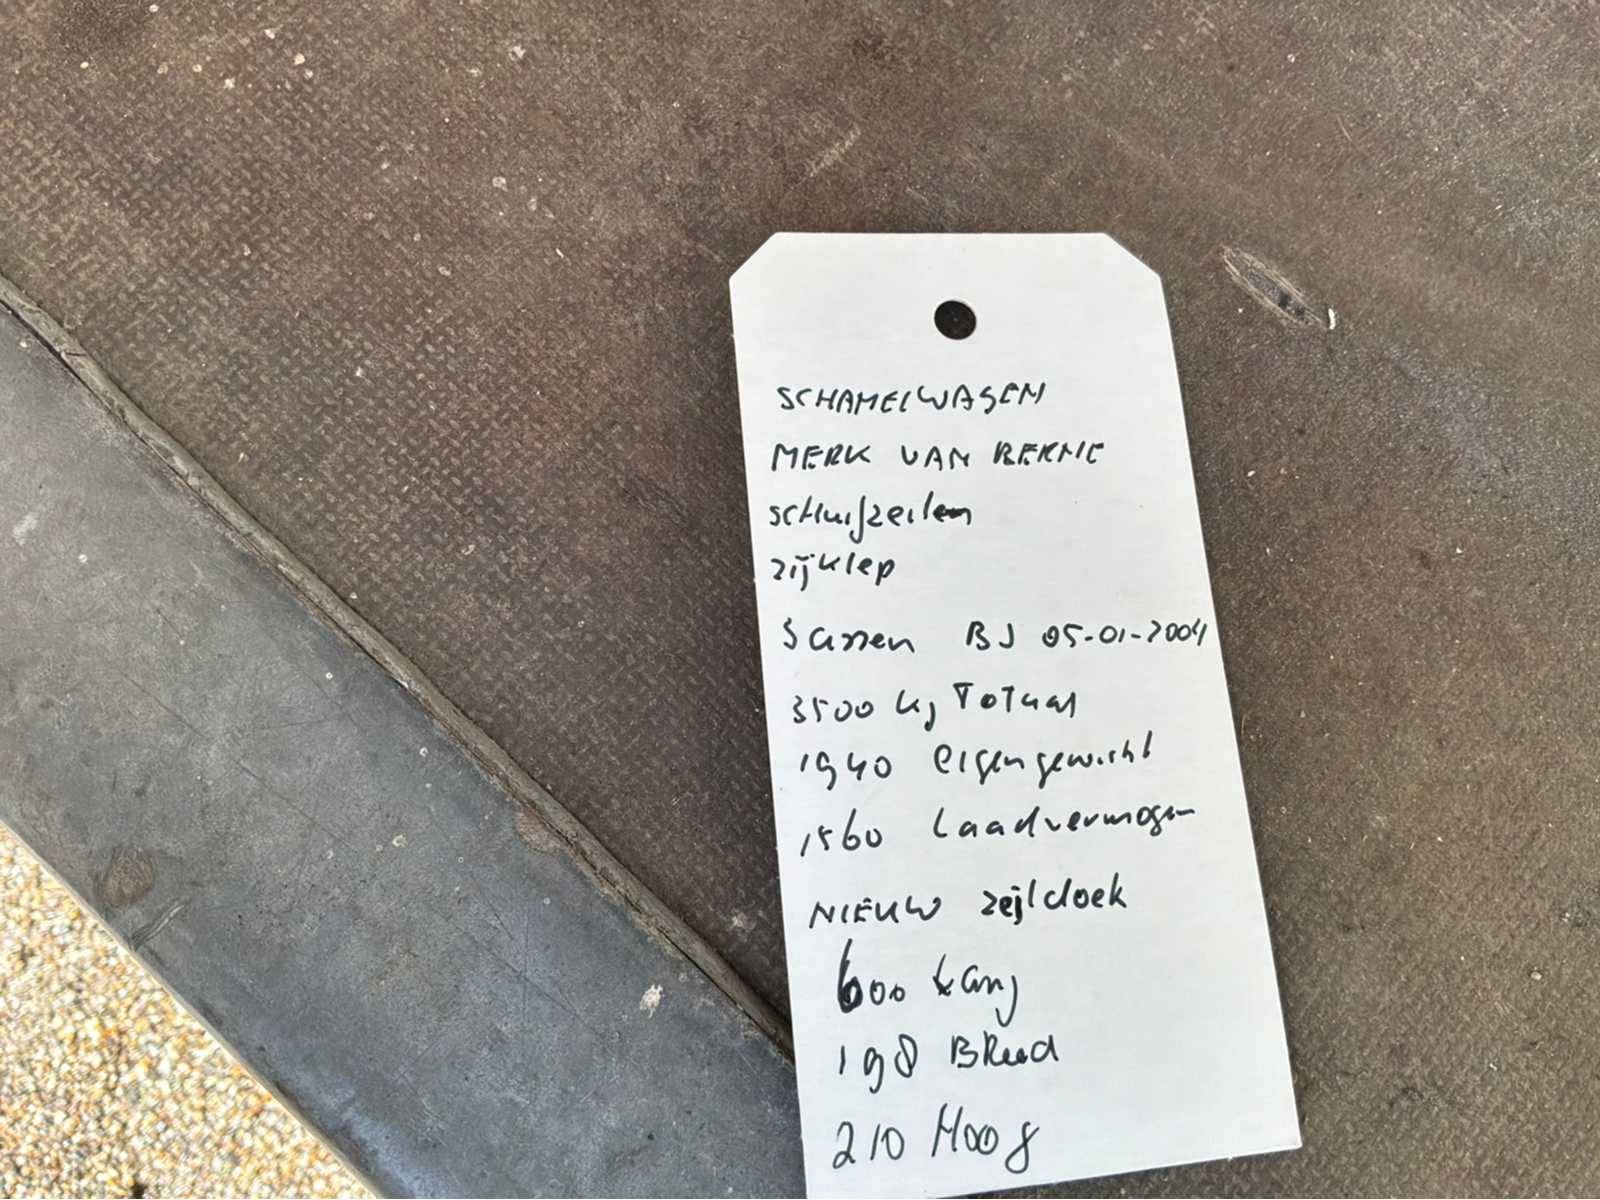 SCHAMELWAGEN
MERK VAN BERNE
schuifzeilen
zijklep
Sassen BJ 05-01-2004
3500 kg Totaal
1940 eigengewicht
1560 Laadvermogen
NIEUW zeildoek
600 Lang
198 BReed
210 Hoog